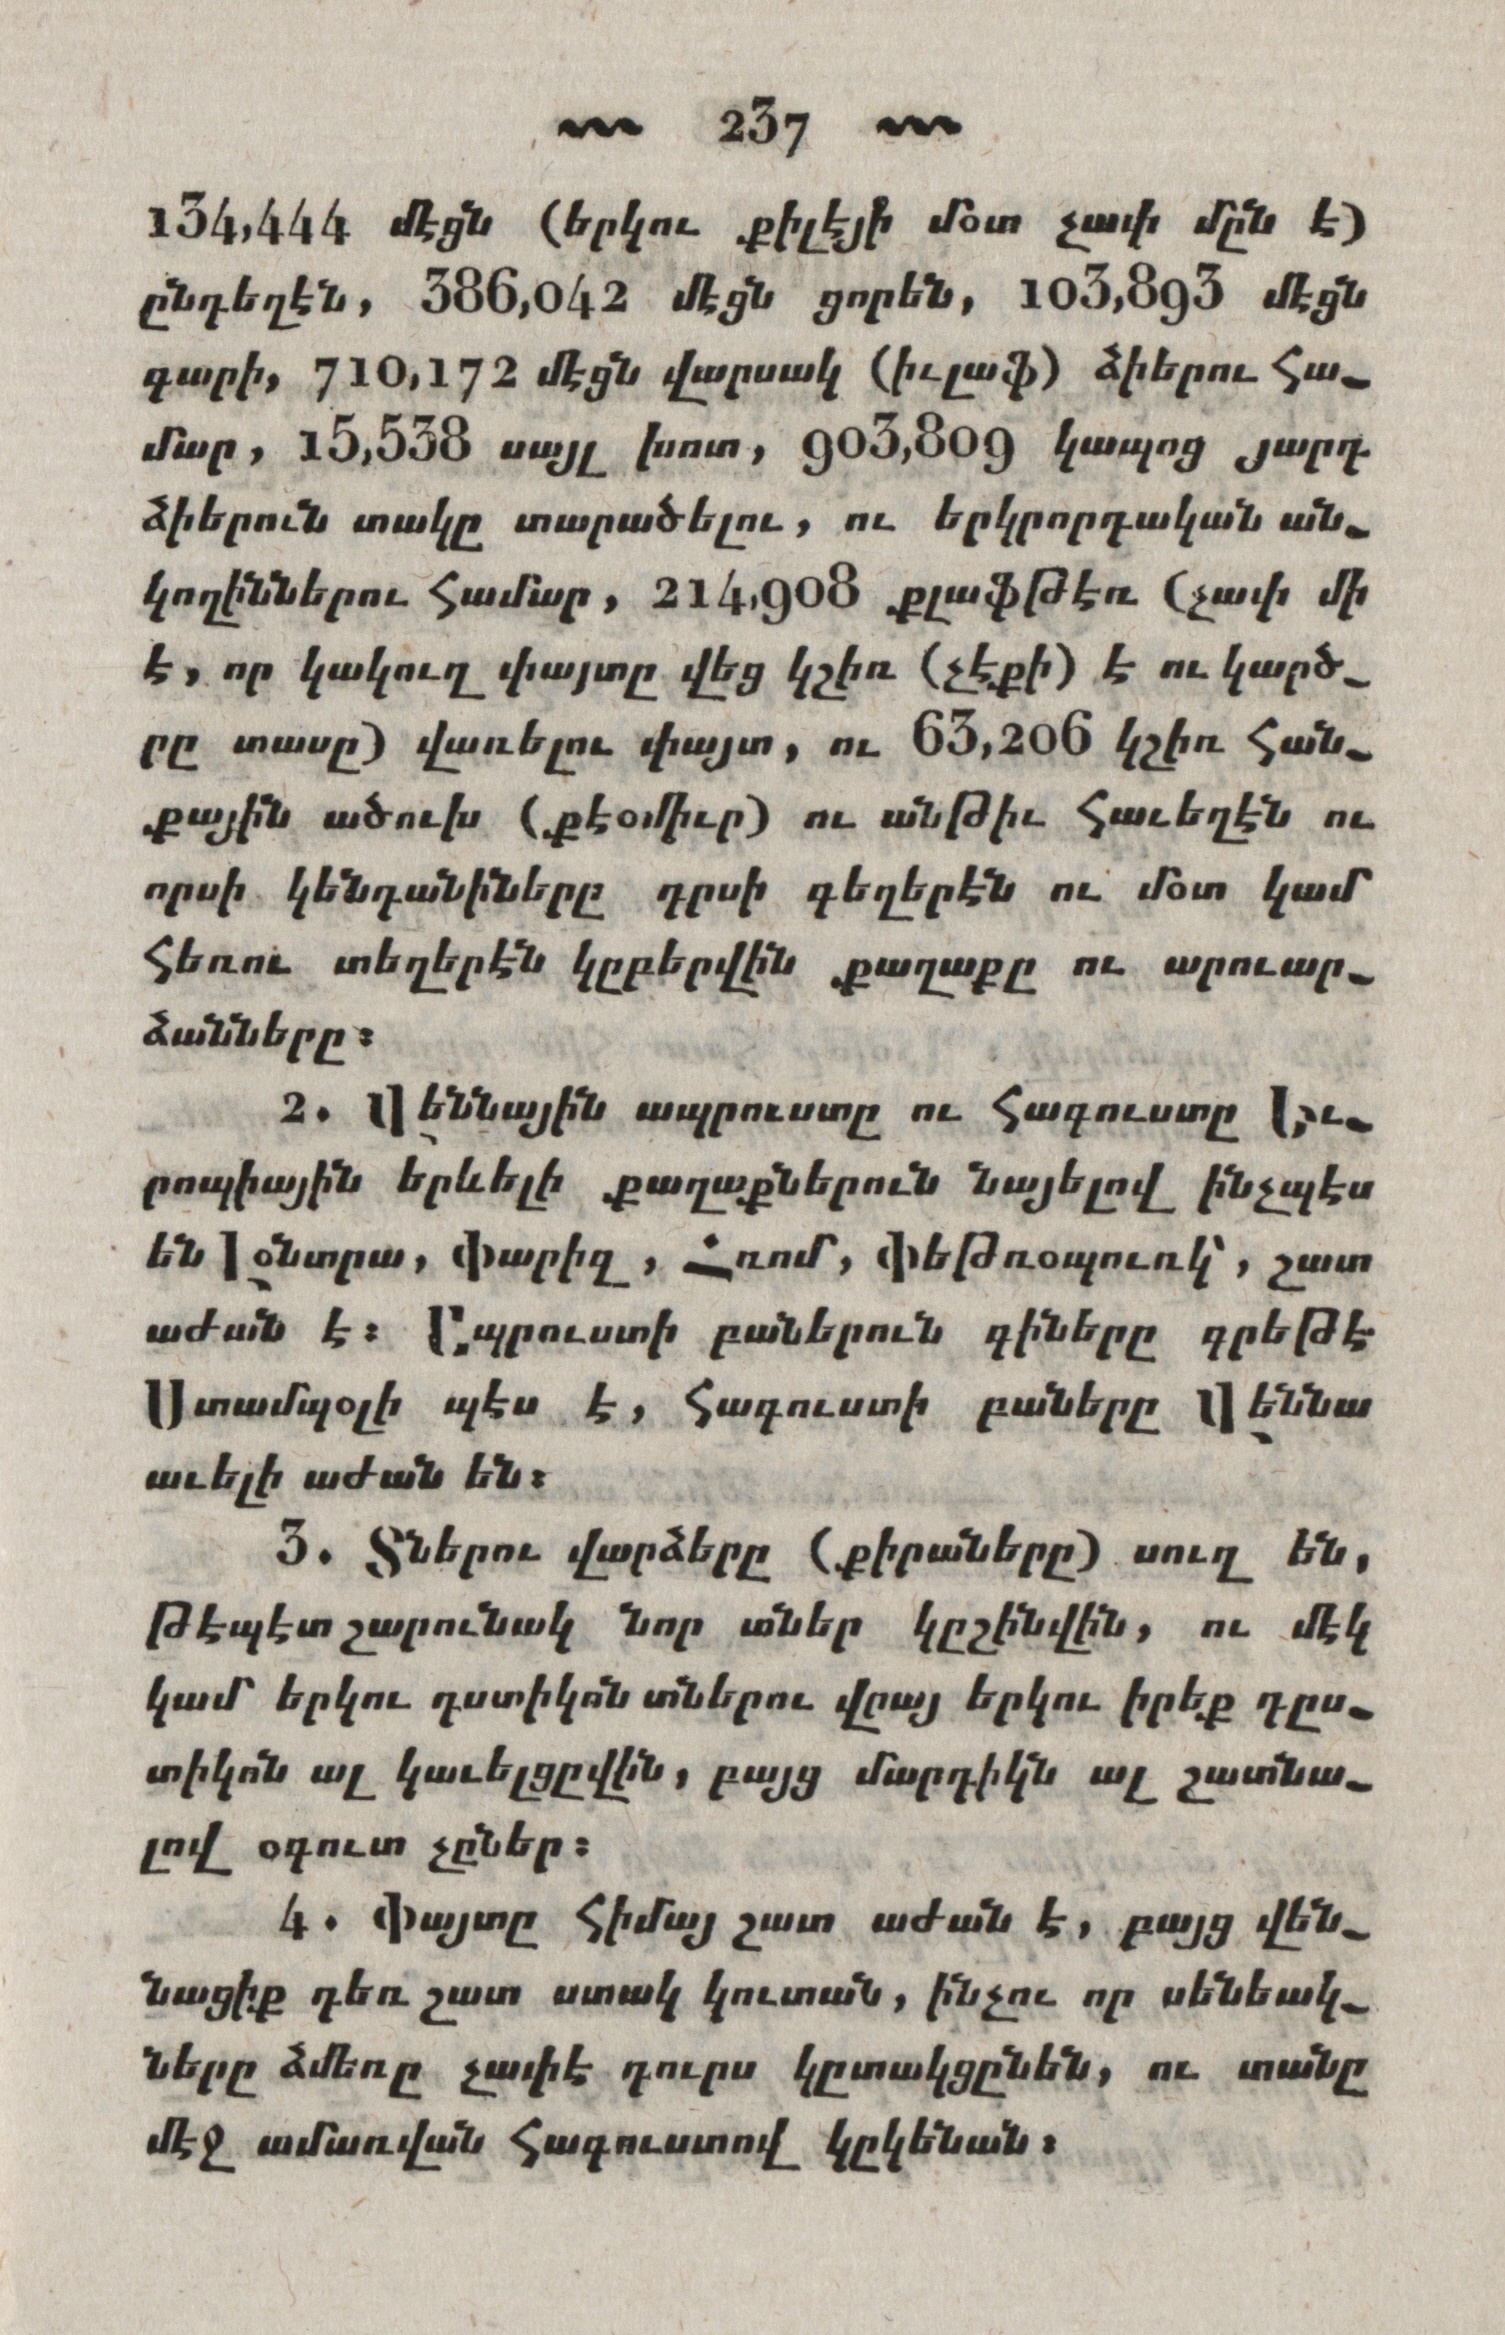 237
134,444 մէցն (երկու քիլէյի մօտ չափ մըն է)
ընդեղէն, 386,042 մէցն ցորեն, 103,893 մէցն
գարի, 710,172 մէցն վարսակ (իւլաֆ) ձիերու հա-
մար, 15,538 սայլ խոտ, 903,809 կապոց յարդ
ձիերուն տակը տարածելու, ու երկրորդական ան-
կողիններու համար, 214,908 քլաֆթէռ (չափ մի
է, որ կակուղ փայտը վեց կշիռ (չէքի) է ու կարծ-
րը տասը) վառելու փայտ, ու 63,206 կշիռ հան-
քային ածուխ (քէօմիւր) ու անթիւ հաւեղէն ու
որսի կենդանիները դրսի գեղերէն ու մօտ կամ
հեռու տեղերէն կըբերվին քաղաքը ու արուար-
ձանները։
2. Վէննային ապրուստը ու հագուստը Եւ-
րոպիային երևելի քաղաքներուն նայելով ինչպէս
են Լօնտրա, Փարիզ, Հռոմ, Փեթռօպուռկ՝, շատ
աժան է։ Ապրուստի բաներուն գիները գրեթէ
Ստամպօլի պէս է, հագուստի բաները Վէննա
աւելի աժան են։
3. Տներու վարձերը (քիրաները) սուղ են,
թէպէտ շարունակ նոր տներ կըշինվին, ու մէկ
կամ երկու դստիկոն տներու վրայ երկու իրեք դըս-
տիկոն ալ կաւելցըվին, բայց մարդիկն ալ շատնա-
լով օգուտ չըներ։
4. Փայտը հիմայ շատ աժան է, բայց վեն-
նացիք դեռ շատ ստակ կուտան, ինչու որ սենեակ-
ները ձմեռը չափէ դուրս կըտակցընեն, ու տանը
մէջ ամառվան հագուստով կըկենան։